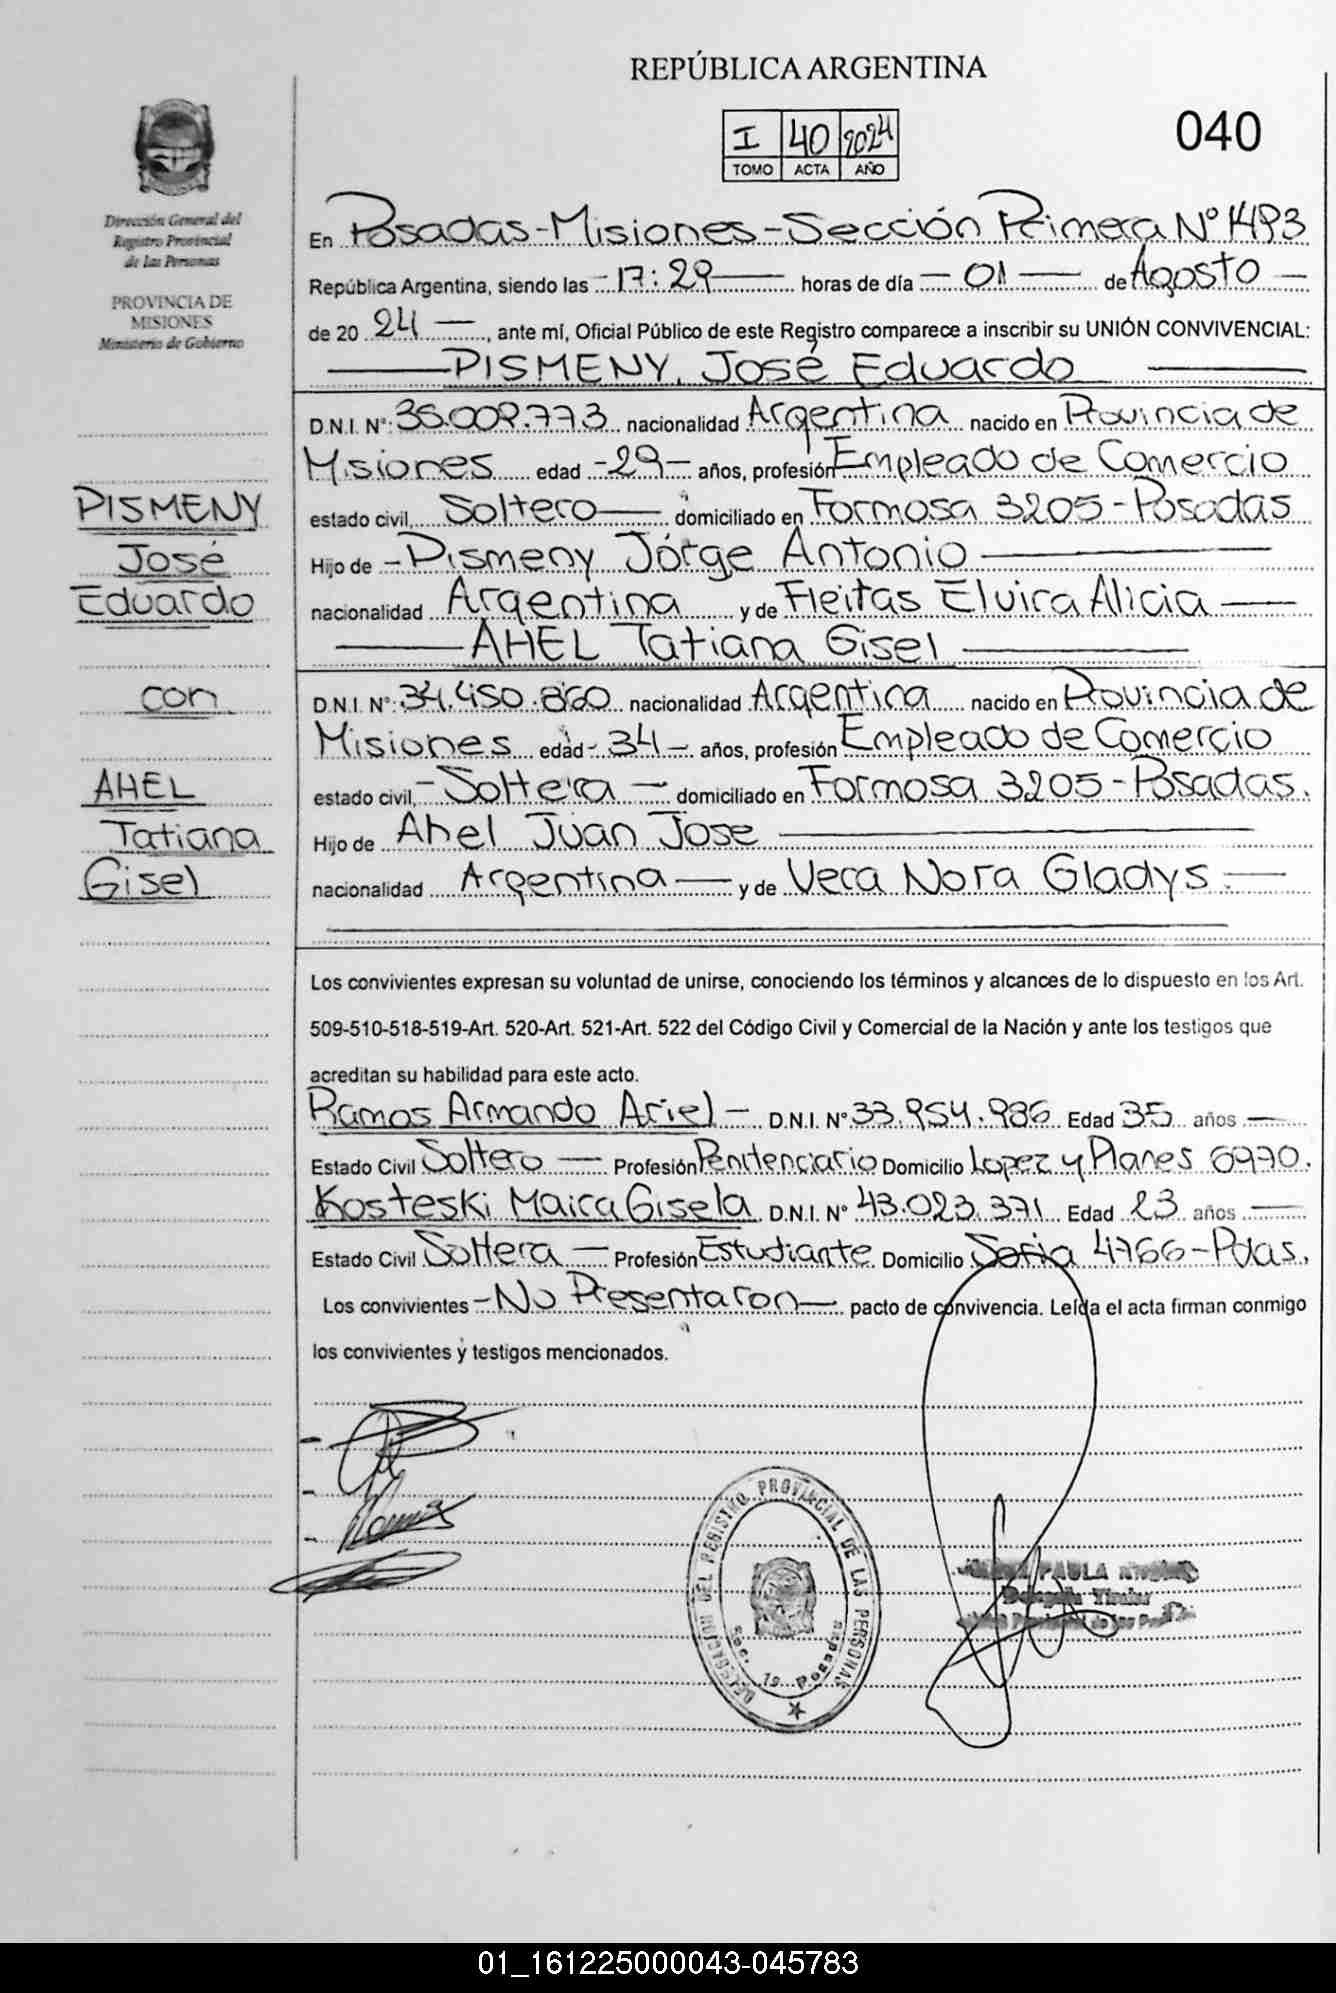 REPÚBLICA ARGENTINA
I 40 2024
TOMO ACTA AÑO
040
Dirección General del
Registro Provincial
de las Personas
PROVINCIA DE
MISIONES
Ministerio de Gobierno
En Posadas-Misiones-Sección Primera N° 1493
República Argentina, siendo las -17:29 horas de día -01- de Agosto -
de 20 24 -, ante mí, Oficial Público de este Registro comparece a inscribir su UNIÓN CONVIVENCIAL:
PISMENY, José Eduardo
D.N.I. N°: 35.009.773 nacionalidad Argentina nacido en Provincia de
Misiones edad -29- años, profesión Empleado de Comercio
estado civil, Soltero - domiciliado en Formosa 3205 - Posadas
Hijo de - Pismeny Jorge Antonio
nacionalidad Argentina y de Fleitas Elvira Alicia -
AHEL Tatiana Gisel
PISMENY
José
Eduardo
con
AHEL
Tatiana
Gisel
D.N.I. N°: 34.450.860 nacionalidad Argentina nacido en Provincia de
Misiones edad - 34 - años, profesión Empleado de Comercio
estado civil, - Soltera - domiciliado en Formosa 3205 - Posadas.
Hijo de Ahel Juan Jose
nacionalidad Argentina - y de Vera Nora Gladys. -
Los convivientes expresan su voluntad de unirse, conociendo los términos y alcances de lo dispuesto en los Art.
509-510-518-519-Art. 520-Art. 521-Art. 522 del Código Civil y Comercial de la Nación y ante los testigos que
acreditan su habilidad para este acto.
Ramos Armando Ariel - D.N.I. N° 33.954.986 Edad 35 años -
Estado Civil Soltero - Profesión Penitenciario Domicilio Lopez y Planes 6970.
Kosteski Maira Gisela D.N.I. N° 43.023.371 Edad 23 años -
Estado Civil Soltera - Profesión Estudiante Domicilio Soria 4766 - Pdas.
Los convivientes - No Presentaron - pacto de convivencia. Leída el acta firman conmigo
los convivientes y testigos mencionados.
DELEGACION DEL REGISTRO PROVINCIAL DE LAS PERSONAS
Sec. 1a Posadas
PAULA
Delegada Titular
Provincial de las
01_161225000043-045783